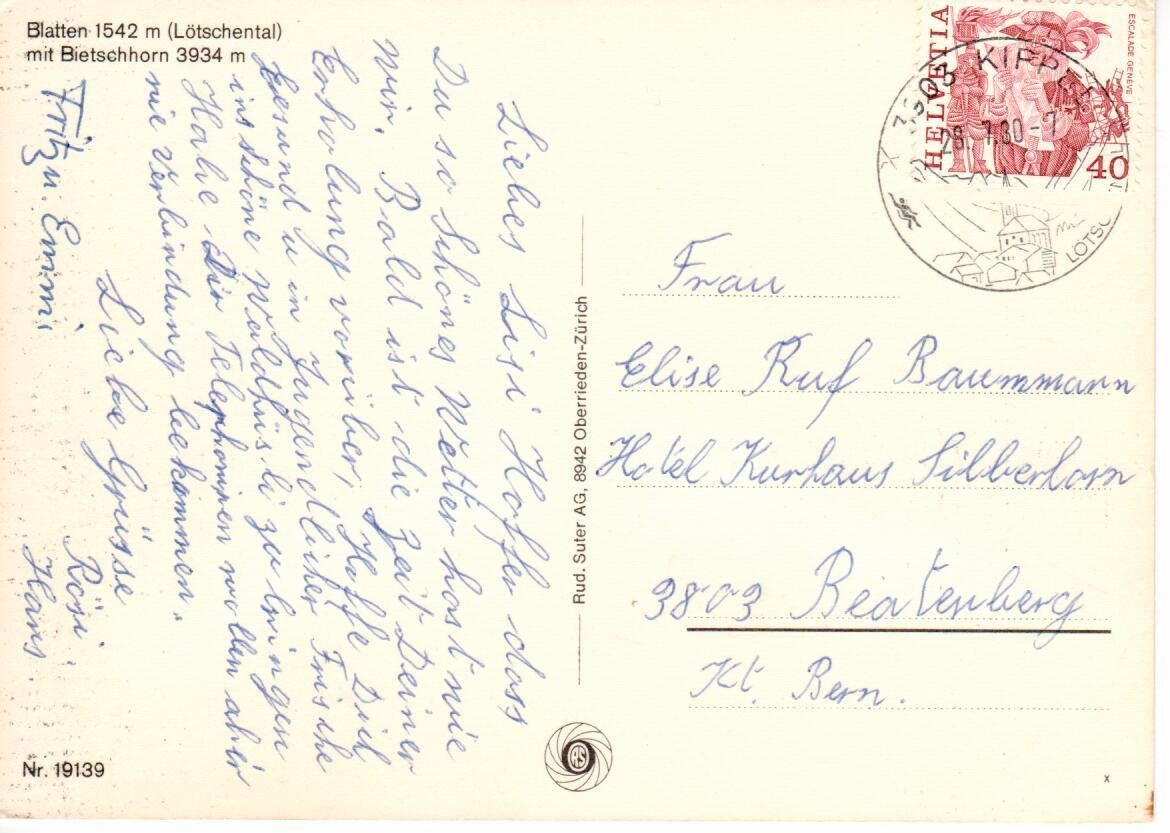 Blatten 1542 m (Lötschental)
mit Bietschhorn 3934 m
Liebes Lisi Hoffen dass
Du so Schönes Wetter hast wie
wir. Bald ist die Zeit Deiner
Erholung vorüber, Hoffe Dich
Gesund u in Jugendlicher Frische
ins schöne Waldhüsli zu bringen
Habe Dir Telephonieren wollen aber
nie Verbindung bekommen.
Liebe Grüsse
Rösi.
Hans.
Fritz u. Emmi
Rud. Suter AG, 8942 Oberrieden-Zürich
Nr. 19139
HELVETIA
ESCALADE GENÈVE
40
3903 KIPPEL
28. 7.80-7
LÖTSC
Frau
Elise Ruf Baummann
Hotel Kurhaus Silberhorn
3803 Beatenberg
Kt. Bern.
x